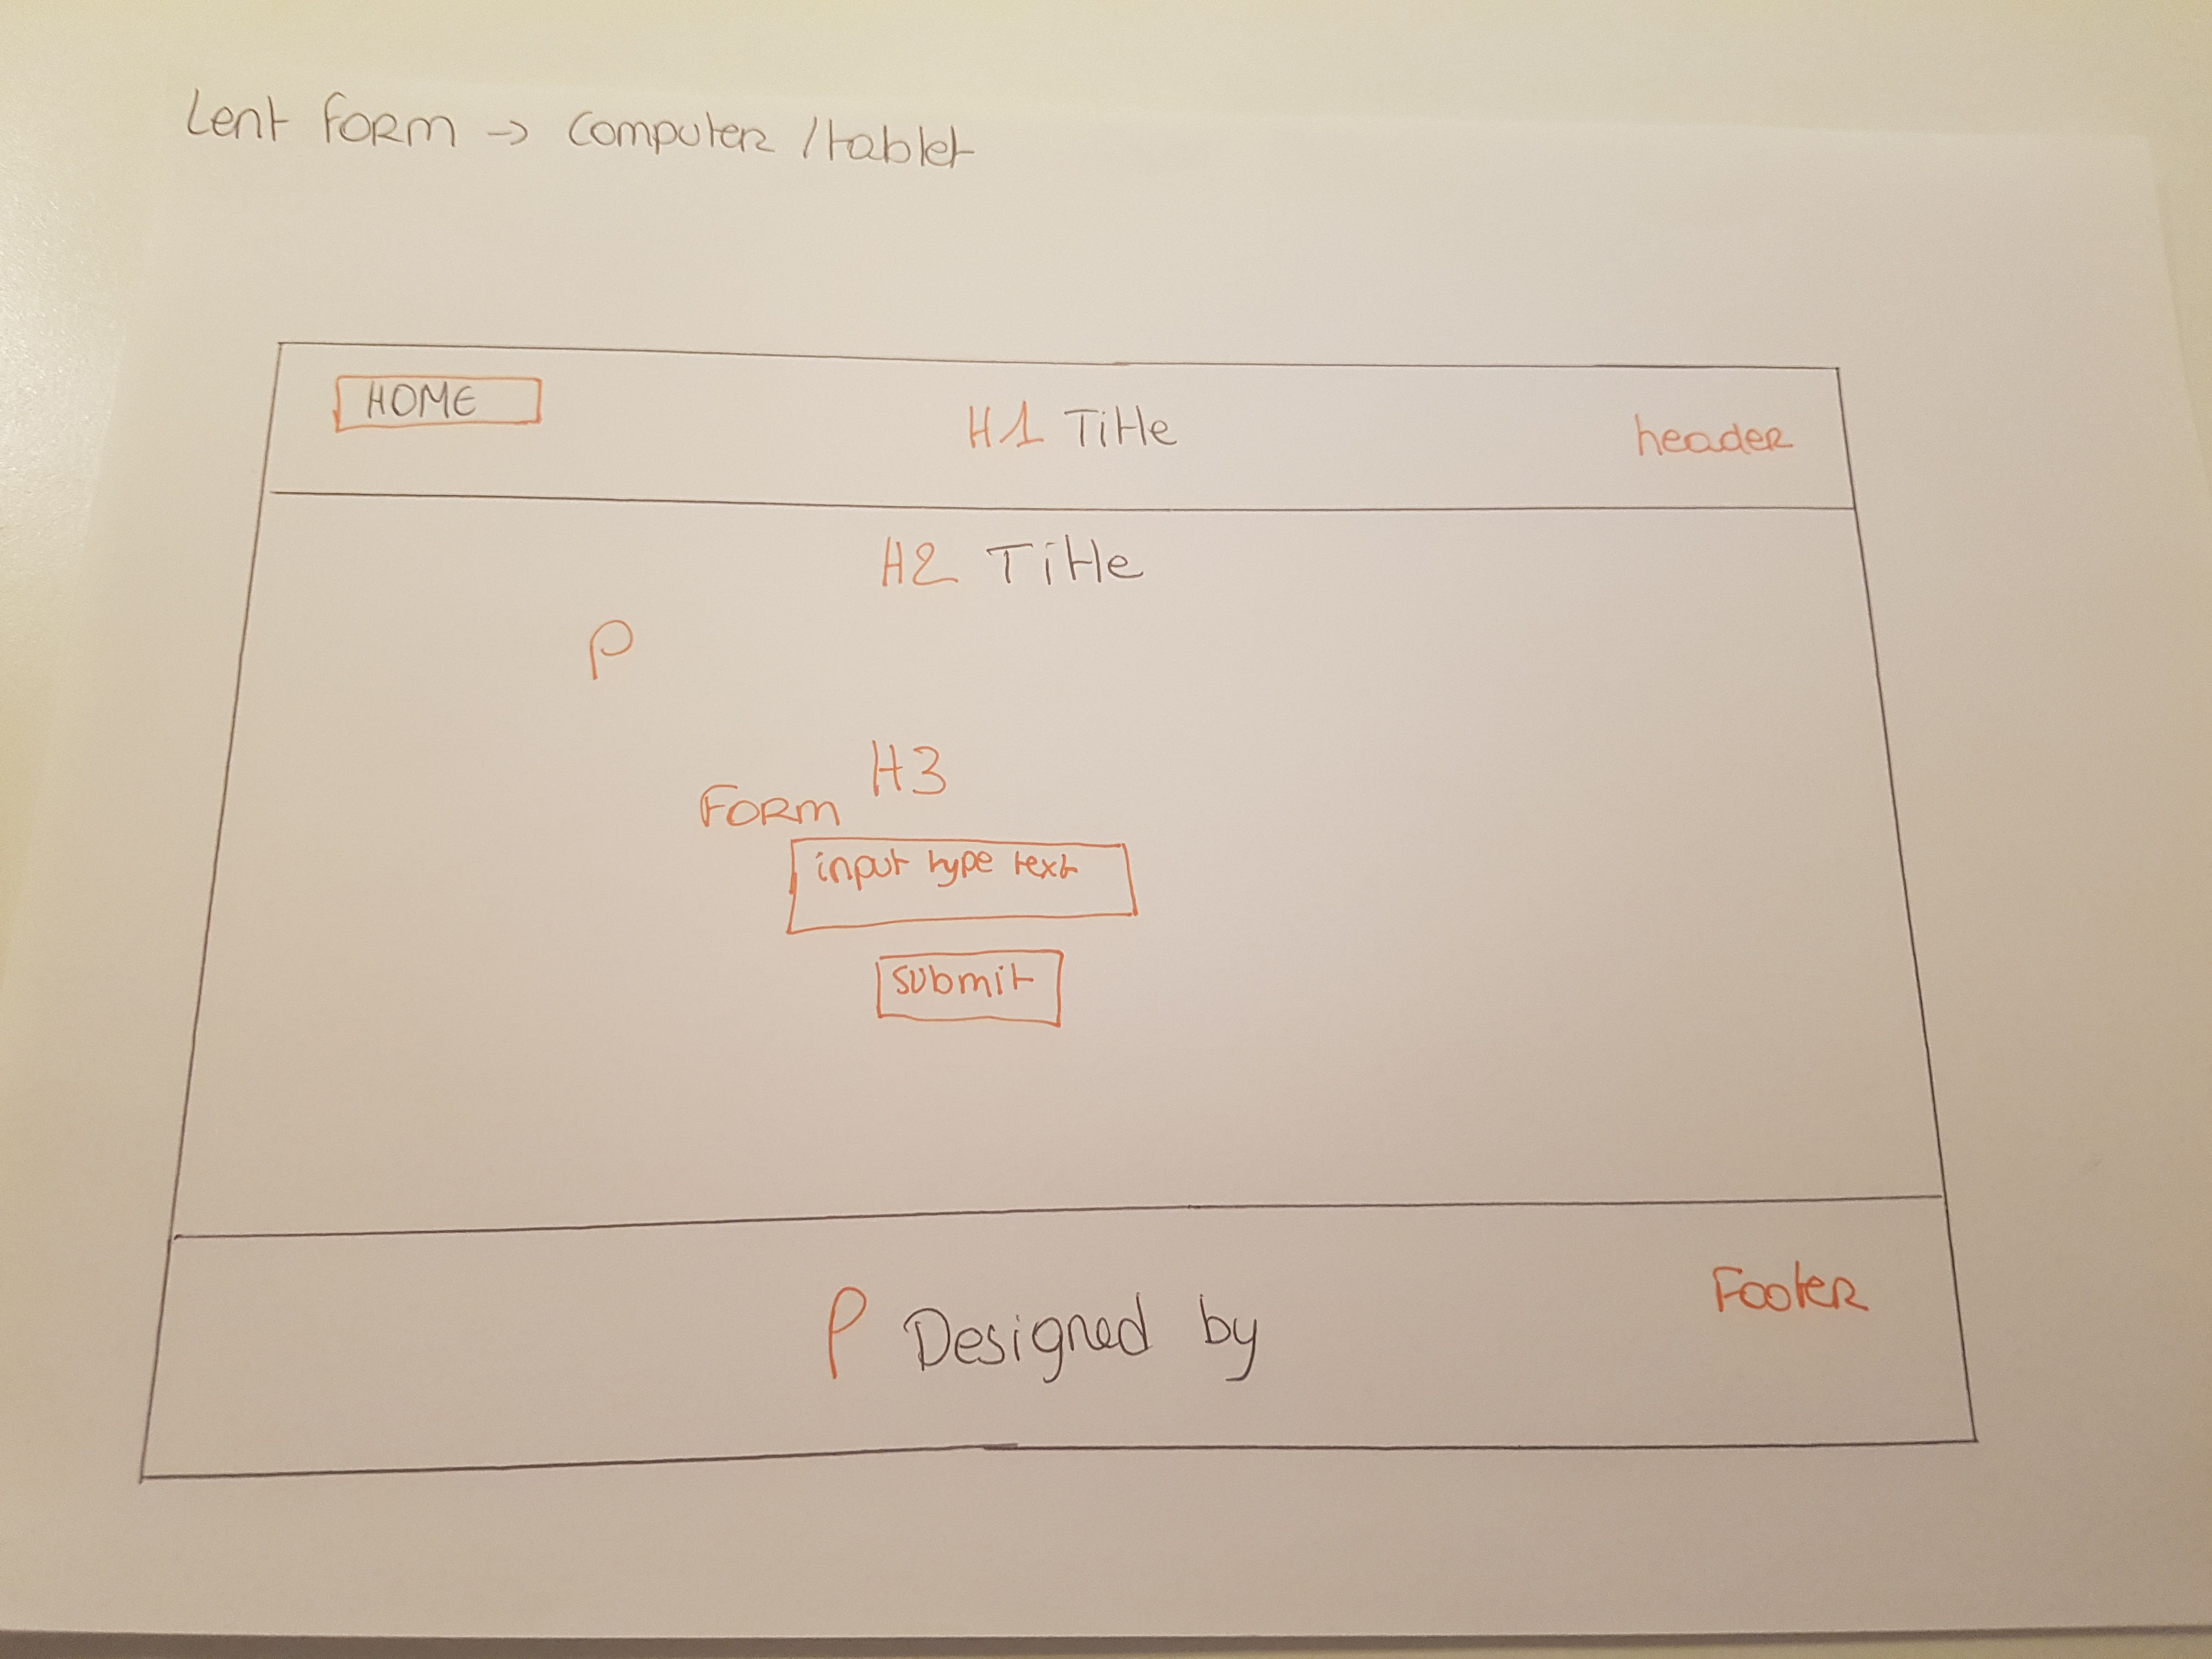 Lent form -> computer / tablet
HOME
H1 Title
header
H2 Title
P
H3
Form
input type text
submit
P Designed by
Footer